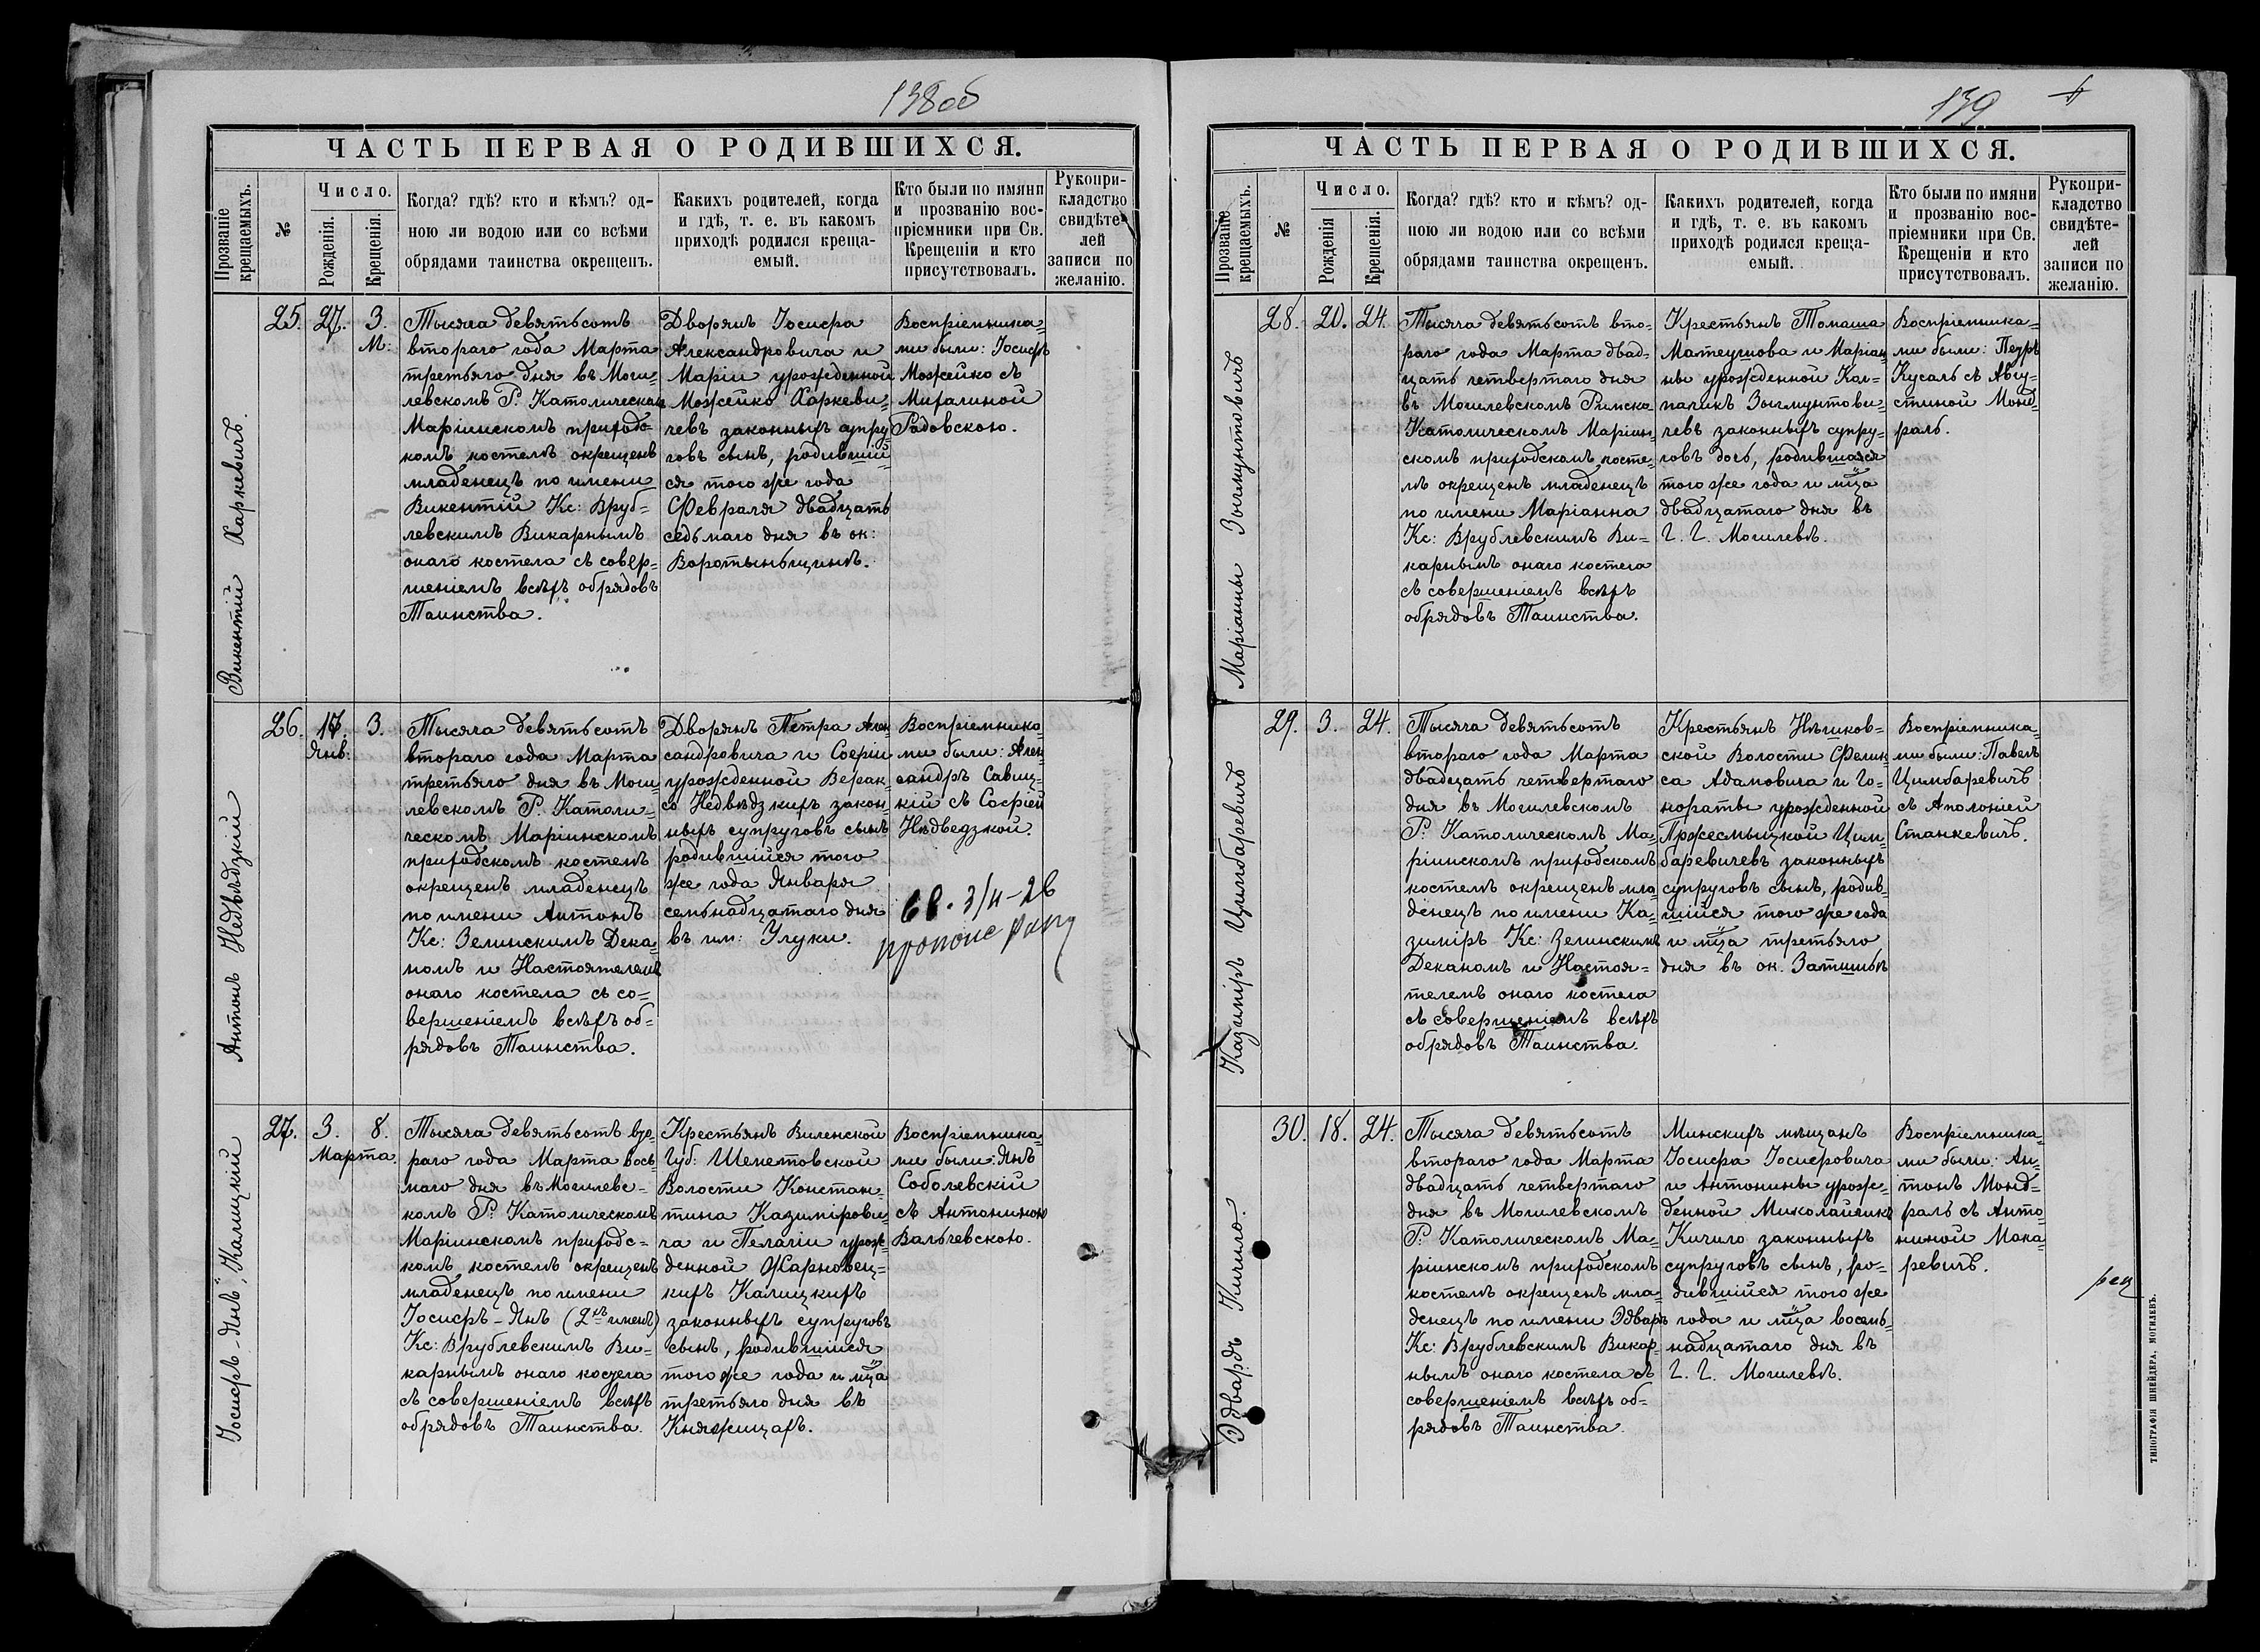 138об
ЧАСТЬ ПЕРВАЯ О РОДИВШИХСЯ.
Прозваніе крещаемыхъ.
№
Число.
Рожденія.
Крещенія.
Когда? гдѣ? кто и кѣмъ? од-
ною ли водою или со всѣми
обрядами таинства окрещенъ.
Какихъ родителей, когда
и гдѣ, т. е. въ какомъ
приходѣ родился креща-
емый.
Кто были по имяни
и прозванію вос-
пріемники при Св.
Крещеніи и кто
присутствовалъ.
Рукопри-
кладство
свидѣте-
лей
записи по
желанію.
Викентій Харкевичъ.
25.
27.
3.
М:
Тысяча девятьсотъ
втораго года Марта
третьяго дня въ Моги-
левскомъ Р. Католическомъ
Маріинскомъ приходс-
комъ костелѣ окрещенъ
младенецъ по имени
Викентій Кс: Вруб-
левскимъ Викарнымъ
онаго костела съ совер-
шеніемъ всѣхъ обрядовъ
Таинства.
Дворянъ Іосифа
Александровича и
Маріи урожденной
Можейко Харкеви-
чевъ законныхъ супру-
говъ сынъ, родившій-
ся того же года
Февраля двадцать
седьмаго дня въ ок:
Воротыньщинѣ.
Воспріемника-
ми были: Іосифъ
Можейко съ
Михалиной
Радовскою.
Антонъ Недвѣдзкій
26.
17.
Янв:
3.
Тысяча девятьсотъ
втораго года Марта
третьяго дня въ Моги-
левскомъ Р. Католи-
ческомъ Маріинскомъ
приходскомъ костелѣ
окрещенъ младенецъ
по имени Антонъ
Кс: Зелинскимъ Дека-
номъ и Настоятелемъ
онаго костела съ со-
вершеніемъ всѣхъ об-
рядовъ Таинства.
Дворянъ Петра Алек-
сандровича и Софіи
урожденной Верак-
со Недвѣдзкихъ закон-
ныхъ супруговъ сынъ
родившійся того
же года Января
семьнадцатаго дня
въ им: Улуки.
Воспріемника-
ми были: Алек-
сандръ Савиц-
кій съ Софіей
Нѣдведзкой.
Іосифъ-Янъ, Калицкій
27.
3.
8.
Марта.
Тысяча девятьсотъ вто-
раго года Марта вось-
маго дня въ Могилевс-
комъ Р. Католическомъ
Маріинскомъ приходс-
комъ костелѣ окрещенъ
младенецъ по имени
Іосифъ-Янъ (2хъ именъ)
Кс: Врублевскимъ Ви-
карнымъ онаго костела
съ совершеніемъ всѣхъ
обрядовъ Таинства.
Крестьянъ Виленской
Губ: Шеметовской
Волости Констан-
тина Казимірови-
ча и Пелагіи урож-
денной Жарновец-
кихъ Калицкихъ
законныхъ супруговъ
сынъ, родившійся
того же года и мца
третьяго дня въ
Княжицахъ.
Воспріемника-
ми были: Янъ
Соболевскій
съ Антониною
Вальчевскою.
139
ЧАСТЬ ПЕРВАЯ О РОДИВШИХСЯ.
Прозваніе крещаемыхъ.
№
Число.
Рожденія
Крещенія.
Когда? гдѣ? кто и кѣмъ? од-
ною ли водою или со всѣми
обрядами таинства окрещенъ.
Какихъ родителей, когда
и гдѣ, т. е. въ какомъ
приходѣ родился креща-
емый.
Кто были по имяни
и прозванію вос-
пріемники при Св.
Крещеніи и кто
присутствовалъ.
Рукопри-
кладство
свидѣте-
лей
записи по
желанію.
Маріанны Зыгмунтовичъ
28.
20.
24.
Тысяча девятьсотъ вто-
раго года Марта двад-
цать четвертаго дня
въ Могилевскомъ Римско-
Католическомъ Маріин-
скомъ приходскомъ косте-
лѣ окрещенъ младенецъ
по имени Маріанна
Кс: Врублевскимъ Ви-
карнымъ онаго костела
съ совершеніемъ всѣхъ
обрядовъ Таинства.
Крестьянъ Томаша
Матеушова и Маріан-
ны урожденной Кал-
пачикъ Зыгмунтови-
чевъ законныхъ супру-
говъ дочь, родившаяся
того же года и мца
двадцатаго дня въ
Г. Г. Могилевѣ.
Воспріемника-
ми были: Петръ
Кусаль съ Авгу-
стиной Монд-
раль.
Казиміръ Цимбаревичъ
29.
3.
24.
Тысяча девятьсотъ
втораго года Марта
двадцать четвертаго
дня въ Могилевскомъ
Р: Католическомъ Ма-
ріинскомъ приходскомъ
костелѣ окрещенъ мла-
денецъ по имени Ка-
зиміръ Кс: Зелинскимъ
Деканомъ и Настоя-
телемъ онаго костела
съ совершеніемъ всѣхъ
обрядовъ Таинства.
Крестьянъ
ской Волости Фелик-
са Адамовича и Го-
нораты урожденной
Цим-
баревичевъ законныхъ
супруговъ сынъ, родив-
шійся того же года
и мца третьяго
дня въ ок. Затишьѣ
Воспріемника-
ми были: Павелъ
Цимбаревичъ
съ Аполоніей
Станкевичъ.
Эдвардъ Кичило.
30.
18.
24.
Тысяча девятьсотъ
втораго года Марта
двадцать четвертаго
дня въ Могилевскомъ
Р: Католическомъ Ма-
ріинскомъ приходскомъ
костелѣ окрещенъ мла-
денецъ по имени Эдвардъ
Кс: Врублевскимъ Викар-
нымъ онаго костела съ
совершеніемъ всѣхъ об-
рядовъ Таинства.
Минскихъ мѣщанъ
Іосифа Іосифовича
и Антонины урож-
денной Миколайчикъ
Кичило законныхъ
супруговъ сынъ, ро-
дившійся того же
года и мца восемь-
надцатаго дня въ
Г. Г. Могилевѣ.
Воспріемника-
ми были: Ан-
тонъ Монд-
раль съ Анто-
ниной Мака-
ревичъ.
ТИПОГРАФІЯ ШНЕЙДЕРА, МОГИЛЕВЪ.